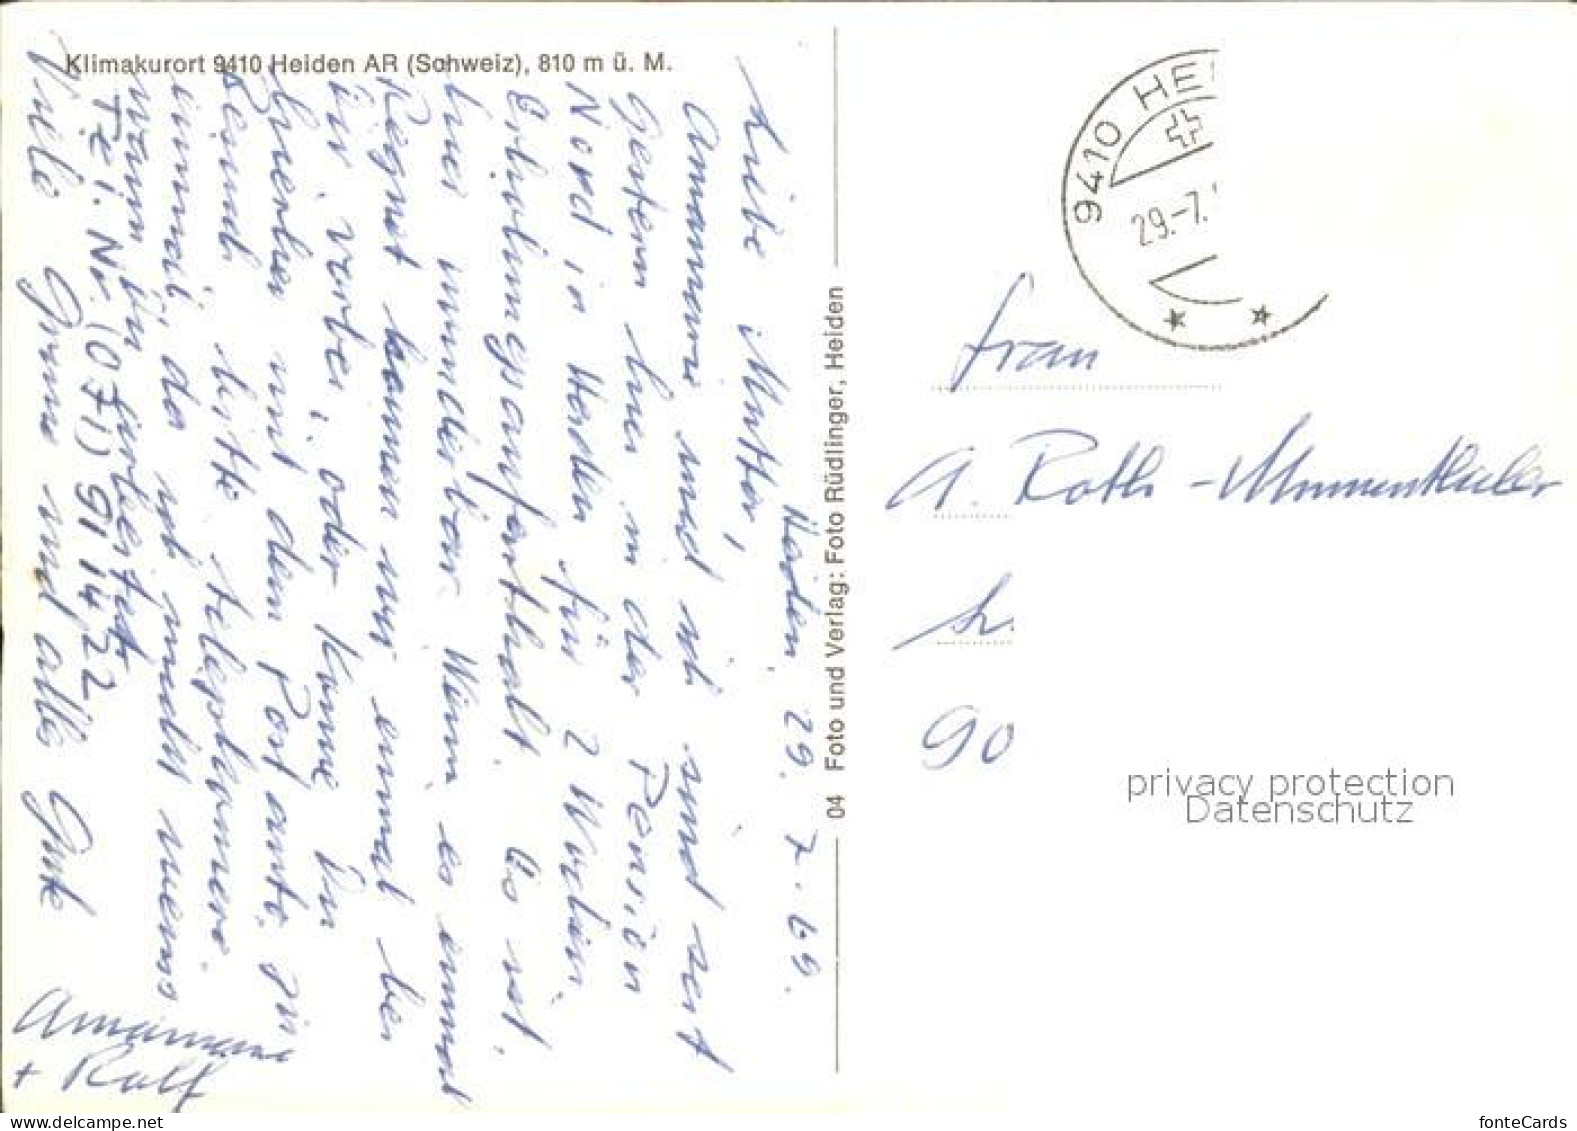 Klimakurort 9410 Heiden AR (Schweiz), 810 m ü. M.
Heiden, 29. 7. 69.
Liebe Mutter,
Annamarie und ich sind seit
gestern hier in der Pension
Nord in Heiden für 2 Wochen
Erholungsaufenthalt. Es ist
hier wunderbar. Wenn es einmal
Regnet kommen wir einmal bei
Dir vorbei, oder komme Du
hierher mit dem Postauto. zu
Besuch bitte telephoniere
einmal, da ich nicht weiss
wann Du fortgehst
Tel. Nr. (071) 91 14 22
Viele Grüsse und alles Gute
Annamarie
+ Rolf
04 Foto und Verlag: Foto Rüdlinger, Heiden
9410 HEI
29.-7.
Frau
A. Roth-Mumenthaler
90
privacy protection
Datenschutz
fonteCards